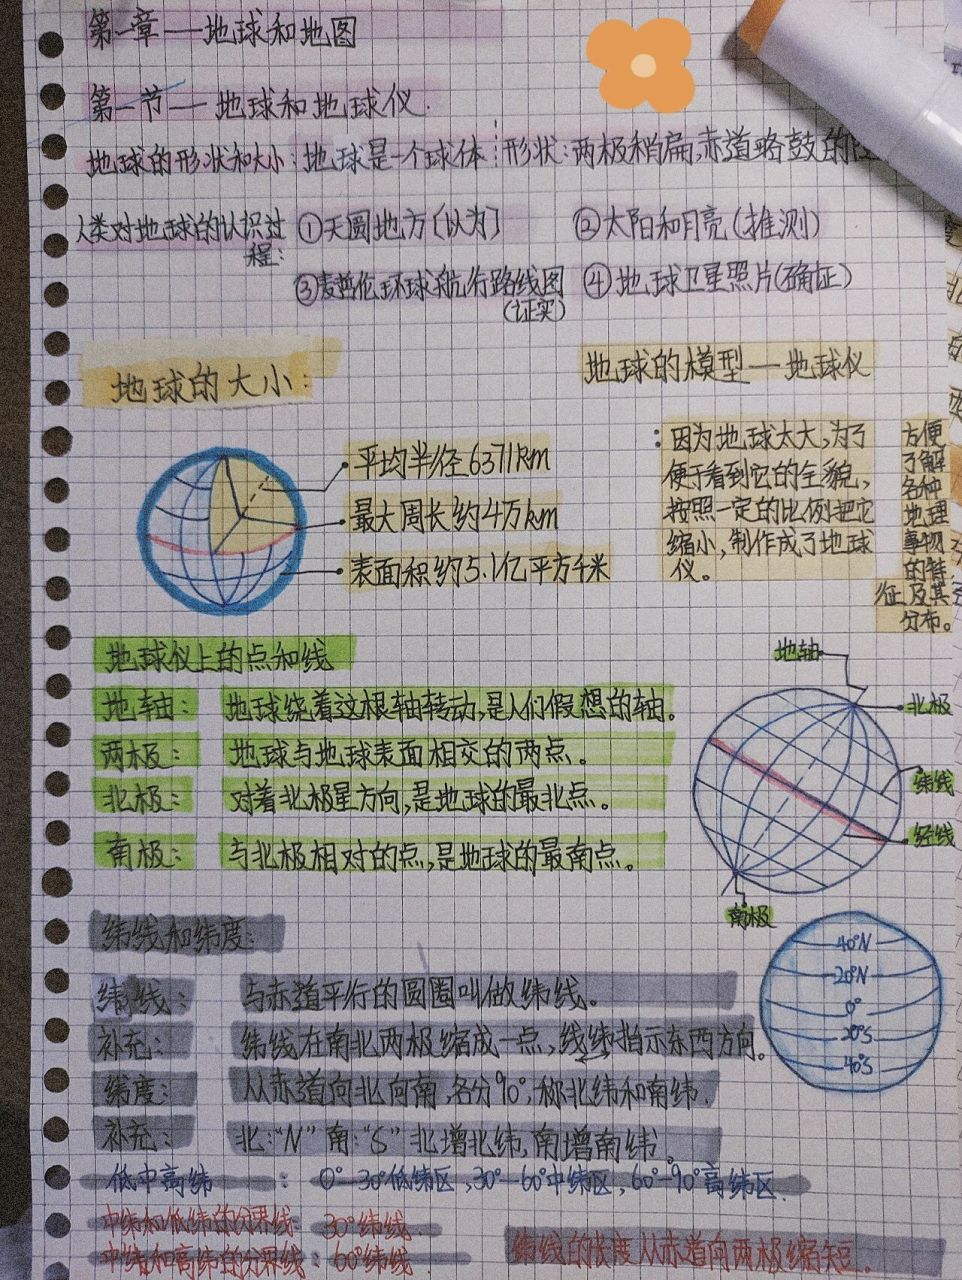 第一章——地球和地图
第一节——地球和地球仪.
地球的形状和大小:地球是一个球体 形状:两极稍扁,赤道略鼓的
人类对地球的认识过程:
①天圆地方(以为)
②太阳和月亮(推测)
③麦哲伦环球航行路线图(证实)
④地球卫星照片(确证)
地球的大小:
平均半径6371km
最大周长约4万km
表面积约5.1亿平方千米
地球的模型—地球仪
:因为地球太大,为了
便于看到它的全貌,
按照一定的比例把它
缩小,制作成了地球
仪。
方便
了解
各种
地理
事物
的特
征及其
分布。
地球仪上的点和线
地轴: 地球绕着这根轴转动,是人们假想的轴。
两极: 地球与地球表面相交的两点。
北极: 对着北极星方向,是地球的最北点。
南极: 与北极相对的点,是地球的最南点。
地轴
北极
纬线
经线
南极
纬线和纬度:
纬线: 与赤道平行的圆圈叫做纬线。
补充: 纬线在南北两极缩成一点,线纬指示东西方向。
纬度: 从赤道向北向南,各分90°,称北纬和南纬.
补充: 北:"N"南:"S"北增北纬,南增南纬。
40°N
20°N
0°
20°S
40°S
低中高纬 : 0°—30°低纬区,30°—60°中纬区,60°—90°高纬区.
中纬和低纬的分界线: 30°纬线.
中纬和高纬的分界线: 60°纬线.
纬线的长度从赤道向两极缩短.